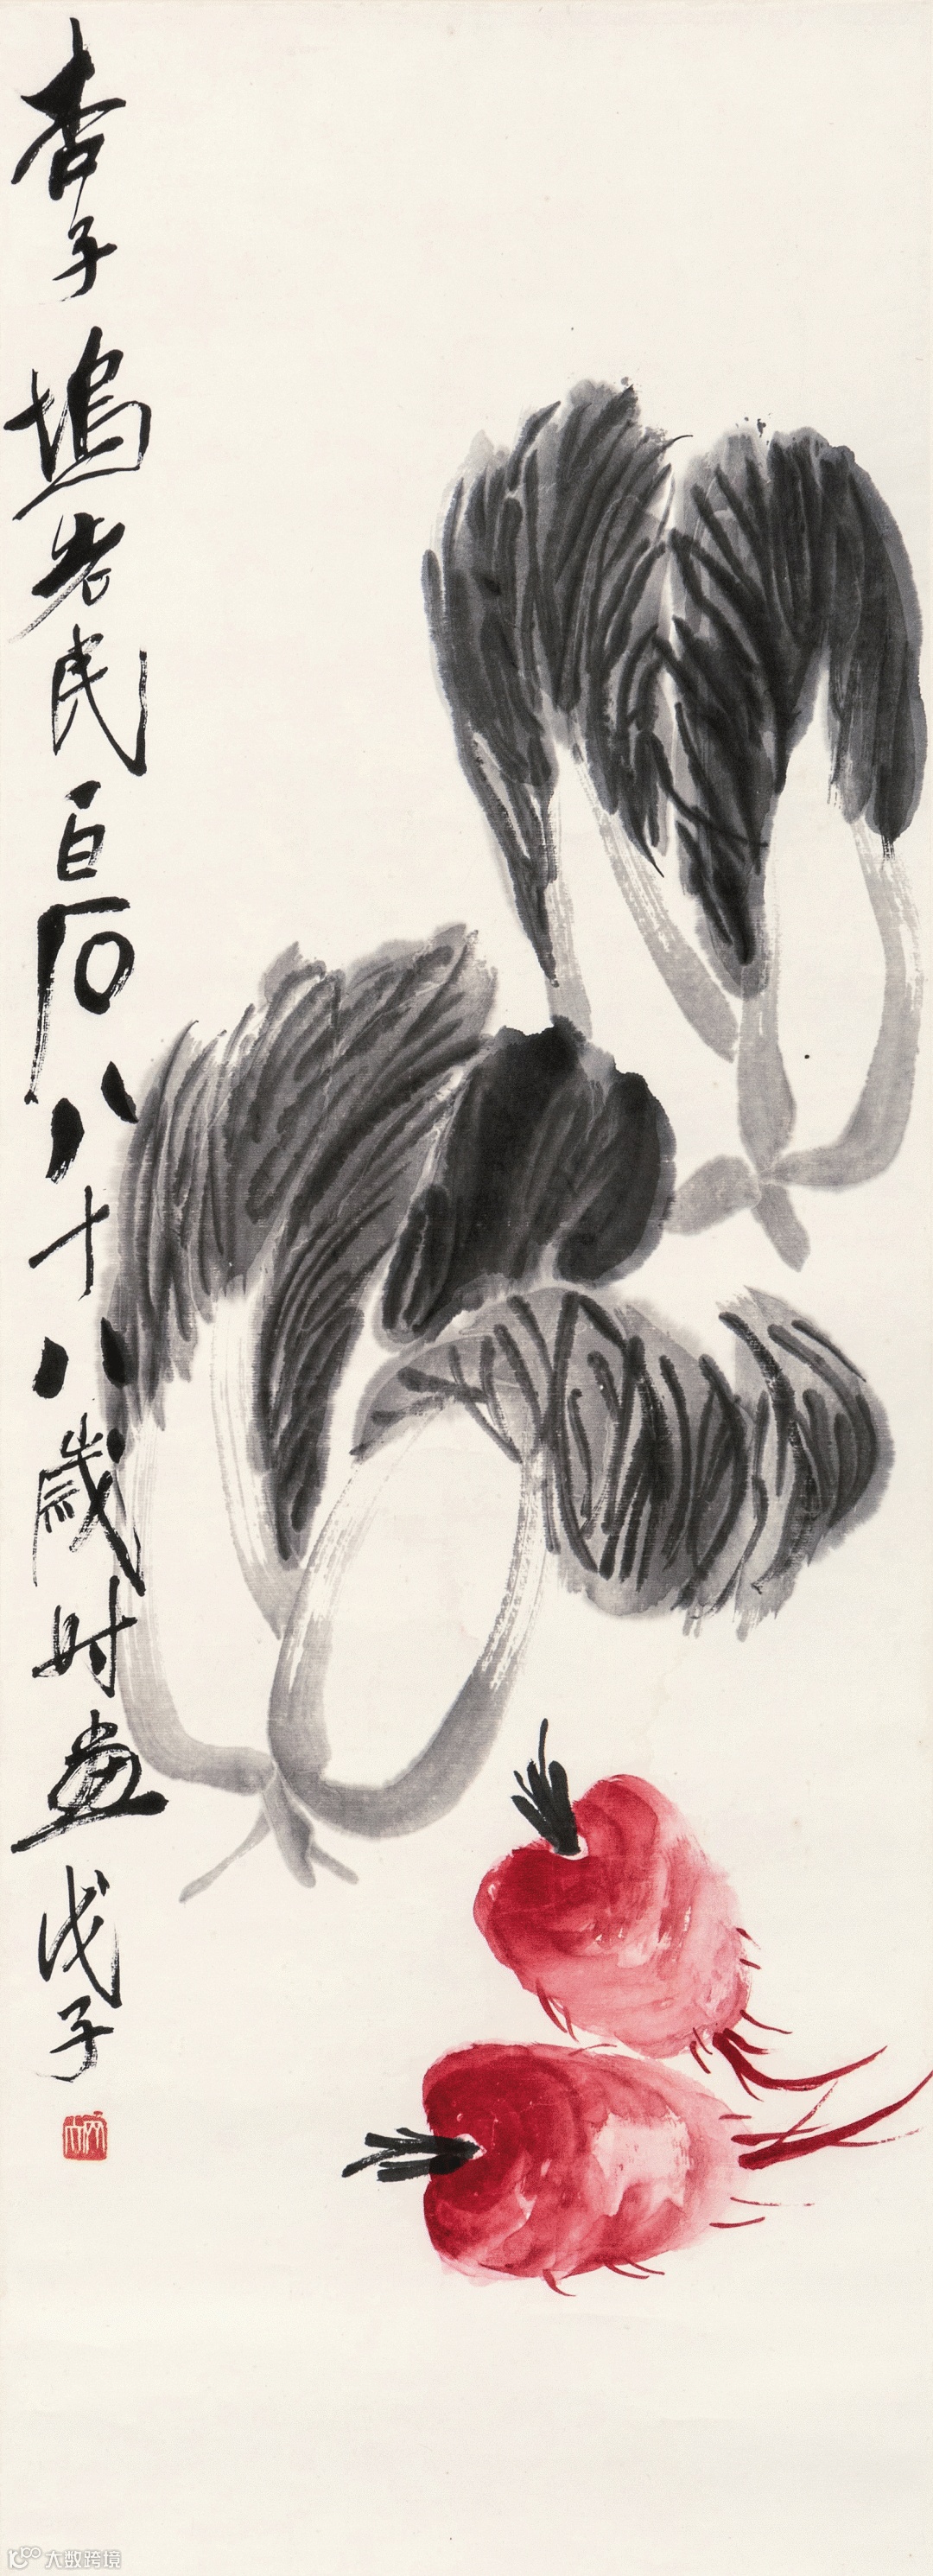 杏子塢老民白石八十八歲時畫戊子
大数跨境